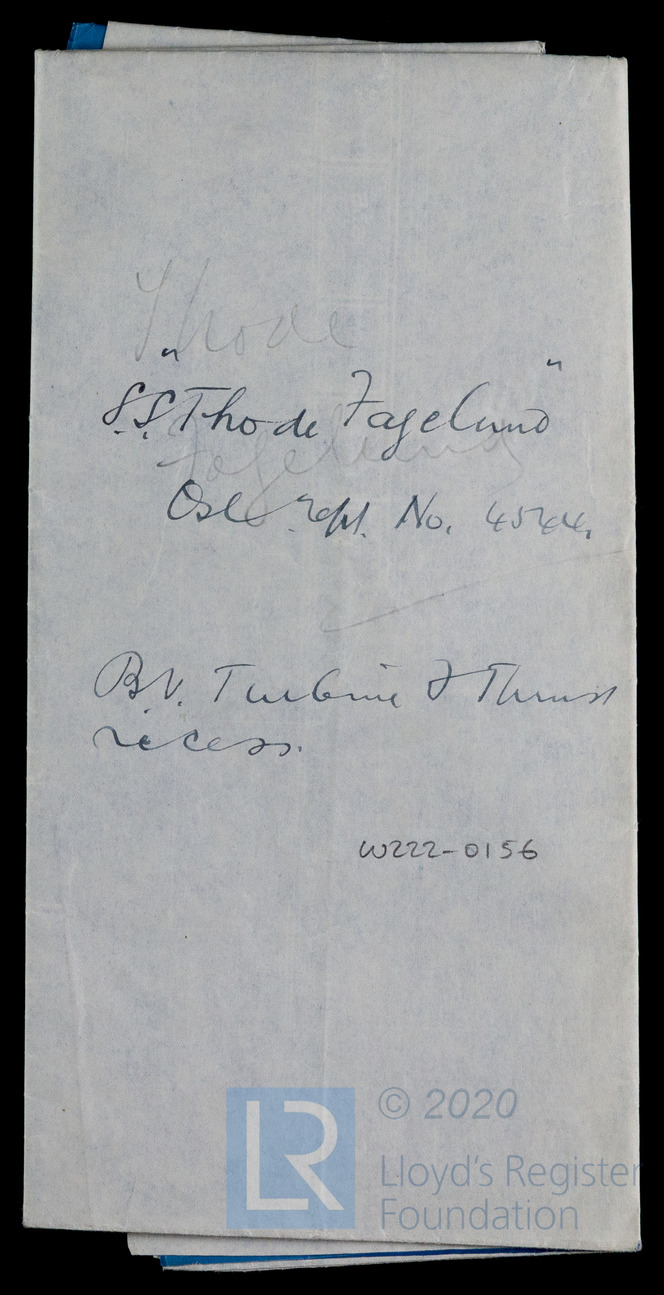 Thode
S.S. "Thode Fagelund"
Fagelund
Oslo rept. No. 4544.
B.V. Turbine & Thrust
recess.
W222-0156
LR © 2020
Lloyd's Register
Foundation